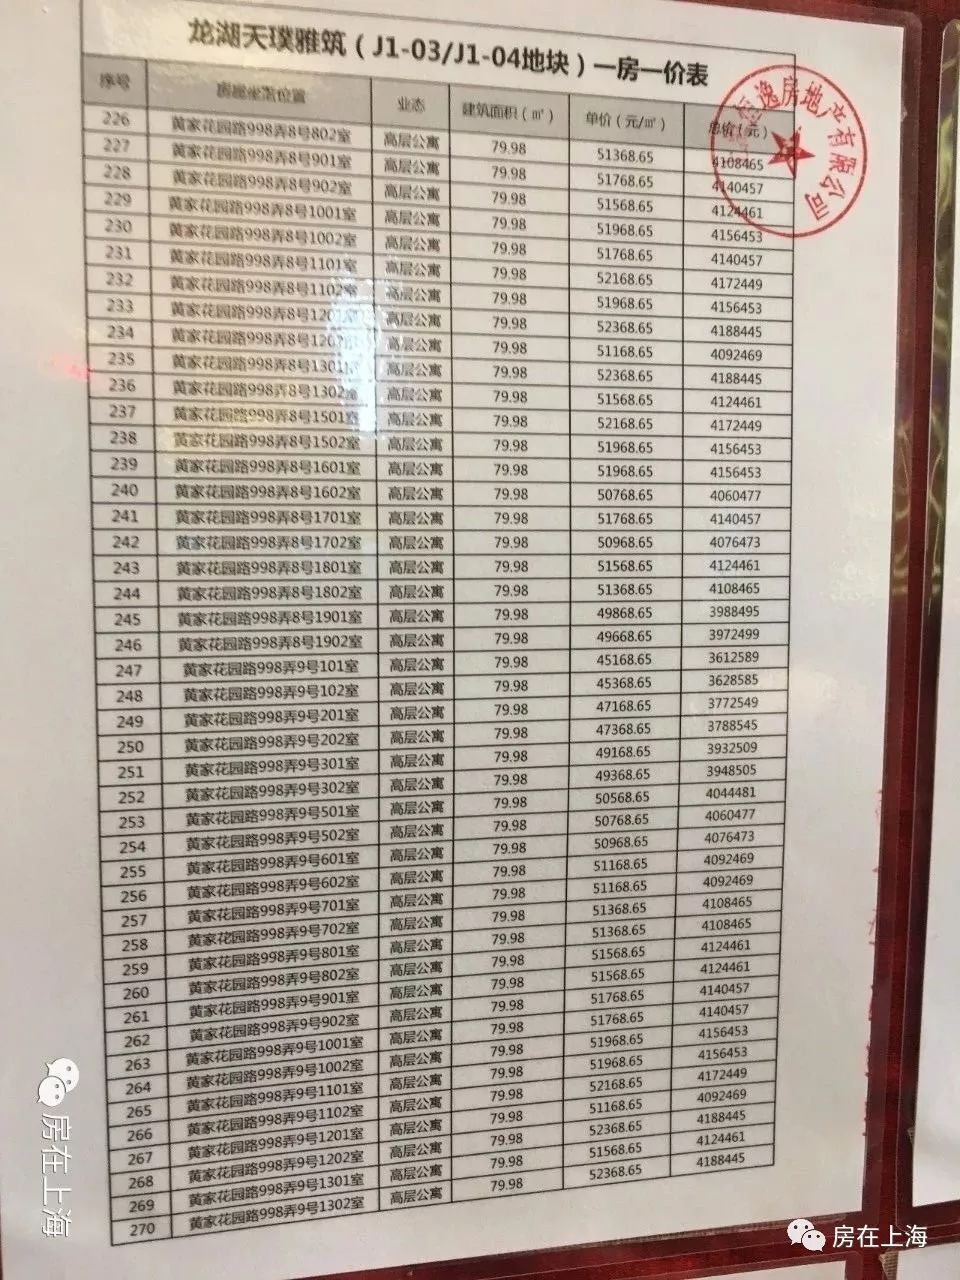 龙湖天璞雅筑（J1-03/J1-04地块）一房一价表
序号 房屋坐落位置 业态 建筑面积（㎡） 单价（元/㎡） 总价（元）
226 黄家花园路998弄8号802室 高层公寓 79.98 51368.65 4108465
227 黄家花园路998弄8号901室 高层公寓 79.98 51768.65 4140457
228 黄家花园路998弄8号902室 高层公寓 79.98 51568.65 4124461
229 黄家花园路998弄8号1001室 高层公寓 79.98 51968.65 4156453
230 黄家花园路998弄8号1002室 高层公寓 79.98 51768.65 4140457
231 黄家花园路998弄8号1101室 高层公寓 79.98 52168.65 4172449
232 黄家花园路998弄8号1102室 高层公寓 79.98 51968.65 4156453
233 黄家花园路998弄8号1201室 高层公寓 79.98 52368.65 4188445
234 黄家花园路998弄8号1202室 高层公寓 79.98 51168.65 4092469
235 黄家花园路998弄8号1301室 高层公寓 79.98 52368.65 4188445
236 黄家花园路998弄8号1302室 高层公寓 79.98 51568.65 4124461
237 黄家花园路998弄8号1501室 高层公寓 79.98 52168.65 4172449
238 黄家花园路998弄8号1502室 高层公寓 79.98 51968.65 4156453
239 黄家花园路998弄8号1601室 高层公寓 79.98 51968.65 4156453
240 黄家花园路998弄8号1602室 高层公寓 79.98 50768.65 4060477
241 黄家花园路998弄8号1701室 高层公寓 79.98 51768.65 4140457
242 黄家花园路998弄8号1702室 高层公寓 79.98 50968.65 4076473
243 黄家花园路998弄8号1801室 高层公寓 79.98 51568.65 4124461
244 黄家花园路998弄8号1802室 高层公寓 79.98 51368.65 4108465
245 黄家花园路998弄8号1901室 高层公寓 79.98 49868.65 3988495
246 黄家花园路998弄8号1902室 高层公寓 79.98 49668.65 3972499
247 黄家花园路998弄9号101室 高层公寓 79.98 45168.65 3612589
248 黄家花园路998弄9号102室 高层公寓 79.98 45368.65 3628585
249 黄家花园路998弄9号201室 高层公寓 79.98 47168.65 3772549
250 黄家花园路998弄9号202室 高层公寓 79.98 47368.65 3788545
251 黄家花园路998弄9号301室 高层公寓 79.98 49168.65 3932509
252 黄家花园路998弄9号302室 高层公寓 79.98 49368.65 3948505
253 黄家花园路998弄9号501室 高层公寓 79.98 50568.65 4044481
254 黄家花园路998弄9号502室 高层公寓 79.98 50768.65 4060477
255 黄家花园路998弄9号601室 高层公寓 79.98 50968.65 4076473
256 黄家花园路998弄9号602室 高层公寓 79.98 51168.65 4092469
257 黄家花园路998弄9号701室 高层公寓 79.98 51168.65 4092469
258 黄家花园路998弄9号702室 高层公寓 79.98 51368.65 4108465
259 黄家花园路998弄9号801室 高层公寓 79.98 51368.65 4108465
260 黄家花园路998弄9号802室 高层公寓 79.98 51568.65 4124461
261 黄家花园路998弄9号901室 高层公寓 79.98 51568.65 4124461
262 黄家花园路998弄9号902室 高层公寓 79.98 51768.65 4140457
263 黄家花园路998弄9号1001室 高层公寓 79.98 51768.65 4140457
264 黄家花园路998弄9号1002室 高层公寓 79.98 51968.65 4156453
265 黄家花园路998弄9号1101室 高层公寓 79.98 51968.65 4156453
266 黄家花园路998弄9号1102室 高层公寓 79.98 52168.65 4172449
267 黄家花园路998弄9号1201室 高层公寓 79.98 51168.65 4092469
268 黄家花园路998弄9号1202室 高层公寓 79.98 52368.65 4188445
269 黄家花园路998弄9号1301室 高层公寓 79.98 51568.65 4124461
270 黄家花园路998弄9号1302室 高层公寓 79.98 52368.65 4188445
逸房地产有限公司
房在上海
房在上海